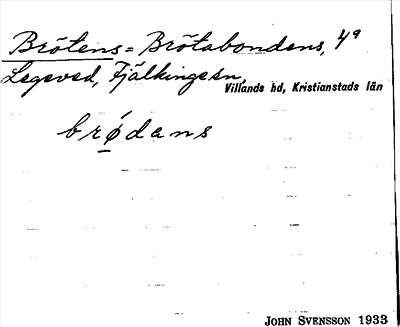 Brötens = Brötabondens, 49
Legeved, Fjälkingesn,
Villands hd, Kristianstads län
brǿdans
JOHN SVENSSON 1933